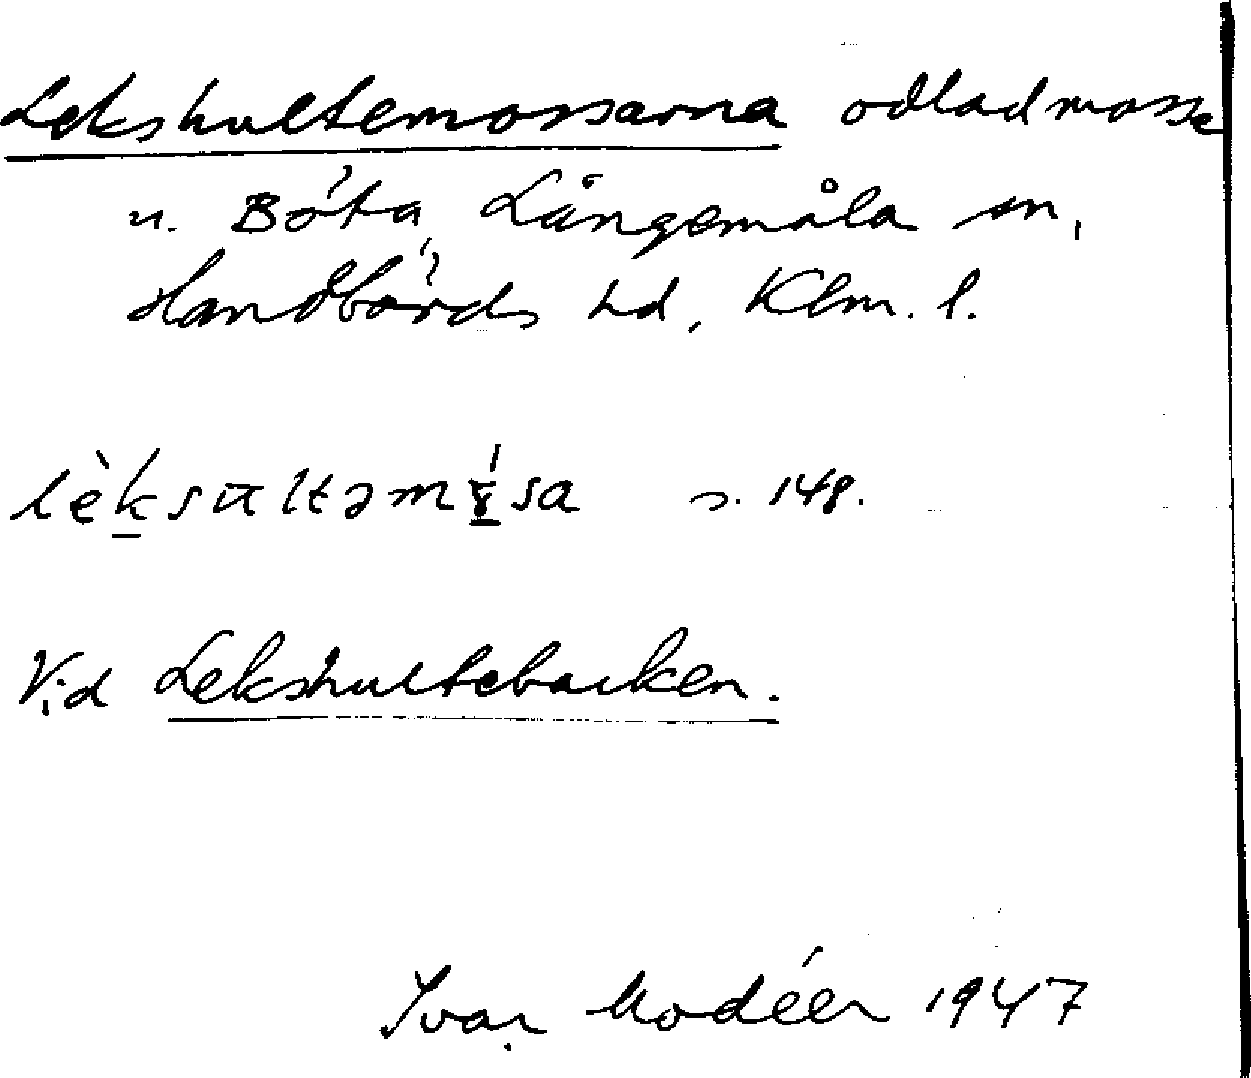 Lekshultemossarna odlad mosse
u. Böta, Långemåla sn,
Handbörds hd, Klm. l.
s. 148.
Vid Lekshultebacken.
Ivar Modéer 1947